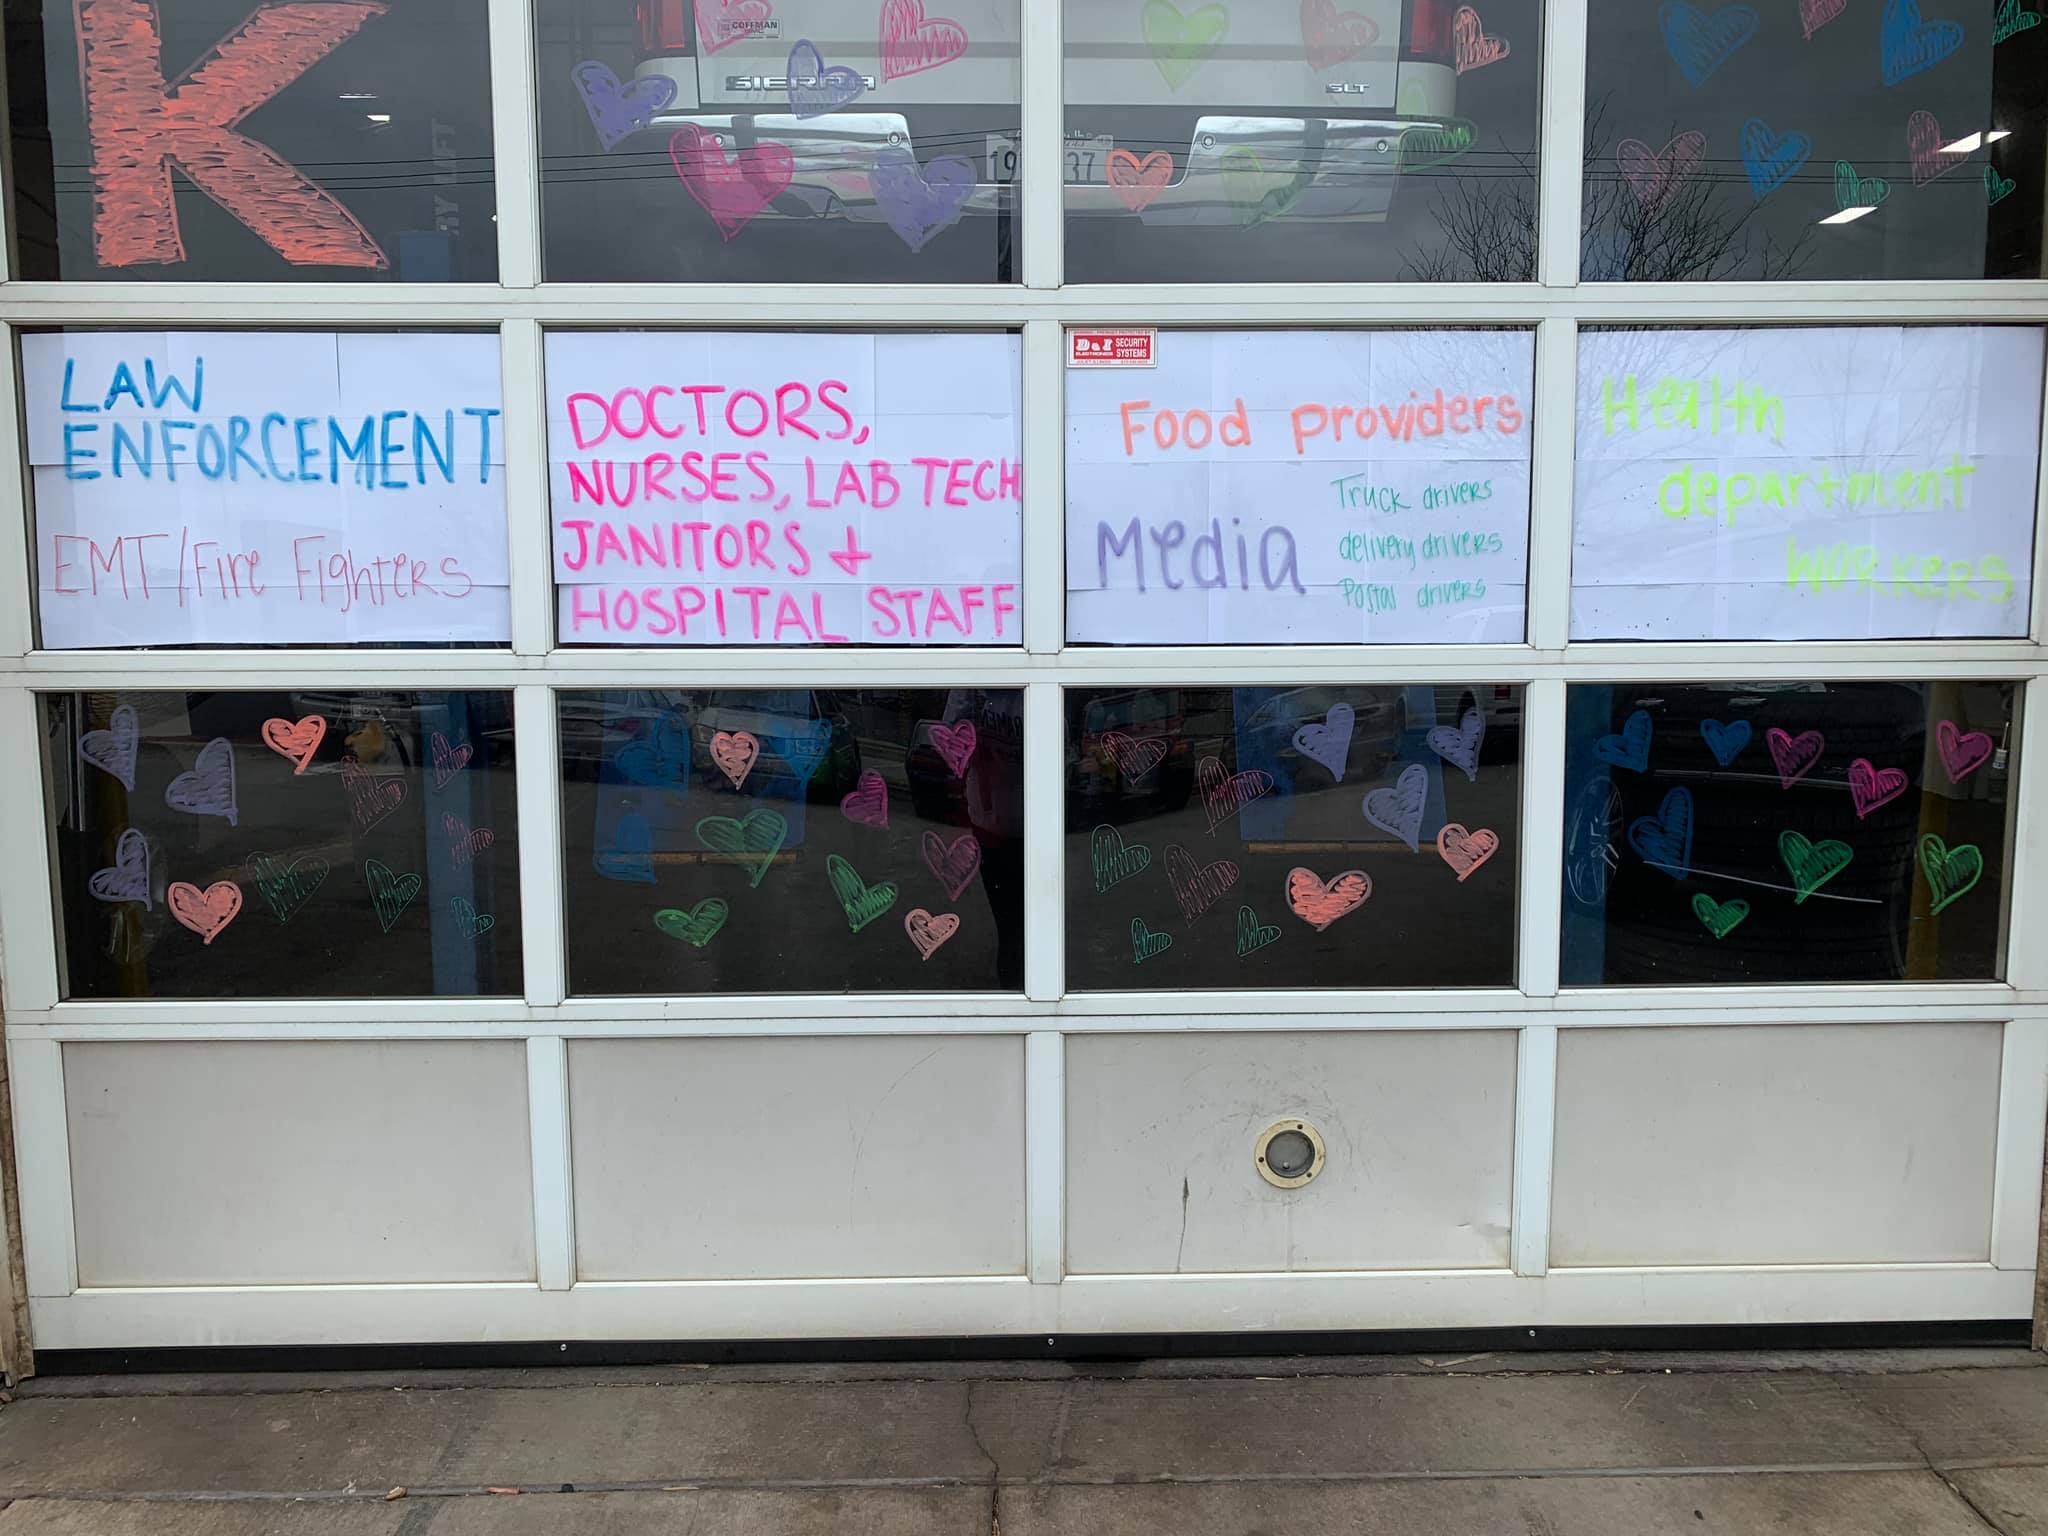 K
COFFMAN
GMC
SIERRA
SLT
19 37
RY LIFT
LAW
ENFORCEMENT
EMT/Fire Fighters
DOCTORS,
NURSES, LAB TECH
JANITORS +
HOSPITAL STAFF
D & I SECURITY
ELECTRONICS SYSTEMS
Food providers
Media
Truck drivers
delivery drivers
Postal drivers
Health
department
workers